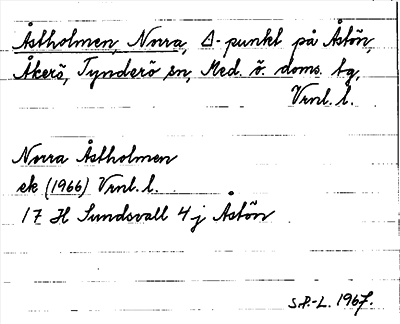 Åstholmen, Norra, Δ-punkt på Åstön,
Åkerö, Tynderö sn, Med. ö. doms. tg,
Vrnl. l.
Norra Åstholmen
ek (1966) Vrnl. l.
17 H Sundsvall 4 j Åstön
S.P.-L. 1967.